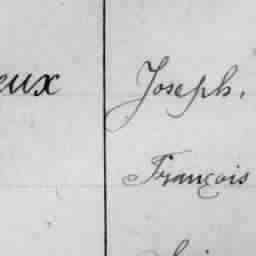 eux Joseph.
François